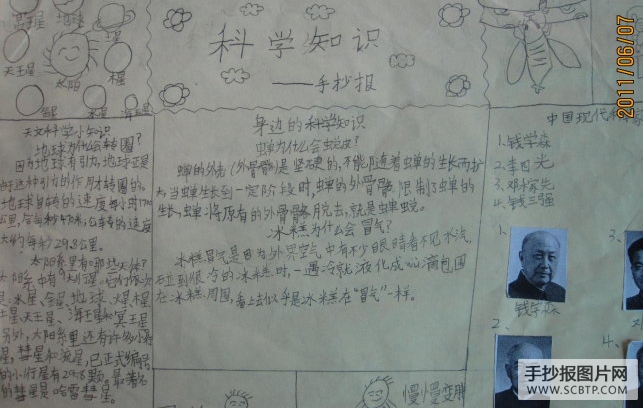 科学知识
——手抄报
2011/06/07
冥王星 地球
天王星
太阳
木星
水星
海王星
天文科学小知识
地球为什么会转圈?
因为地球有引力,地球正是
由于这种引力的作用才转圈的。
地球自转的速度每小时1700
公里,公转的速度
大约每秒29.8公里。
太阳系里有哪些天体?
太阳系中有九大行星。它们依次
是水星、金星、地球、火星、木星
土星、天王星、海王星和冥王星
另外,太阳系里还有许多小行
星,彗星和流星,已正式编号
的小行星有2958颗。最著名
的彗星是哈雷彗星。
身边的科学知识
蝉为什么会蜕皮?
蝉的外壳(外骨骼)是坚硬的,不能随着蝉的生长而扩
大,当蝉生长到一定阶段时,蝉的外骨骼限制了蝉的
生长,蝉将原有的外骨骼脱去,就是蝉蜕。
冰糕为什么会冒气?
冰糕冒气是因为外界空气中有不少眼睛看不见水汽,
碰到很冷的冰糕时,一遇冷就液化成小水滴包围
在冰糕周围,看上去似乎是冰糕在“冒气”一样。
中国现代科学家
1.钱学森
2.李四光
3.邓稼先
4.钱三强
1、
钱学森
3、
2、
4、
慢慢变胖
手抄报图片网
WWW.SCBTP.COM